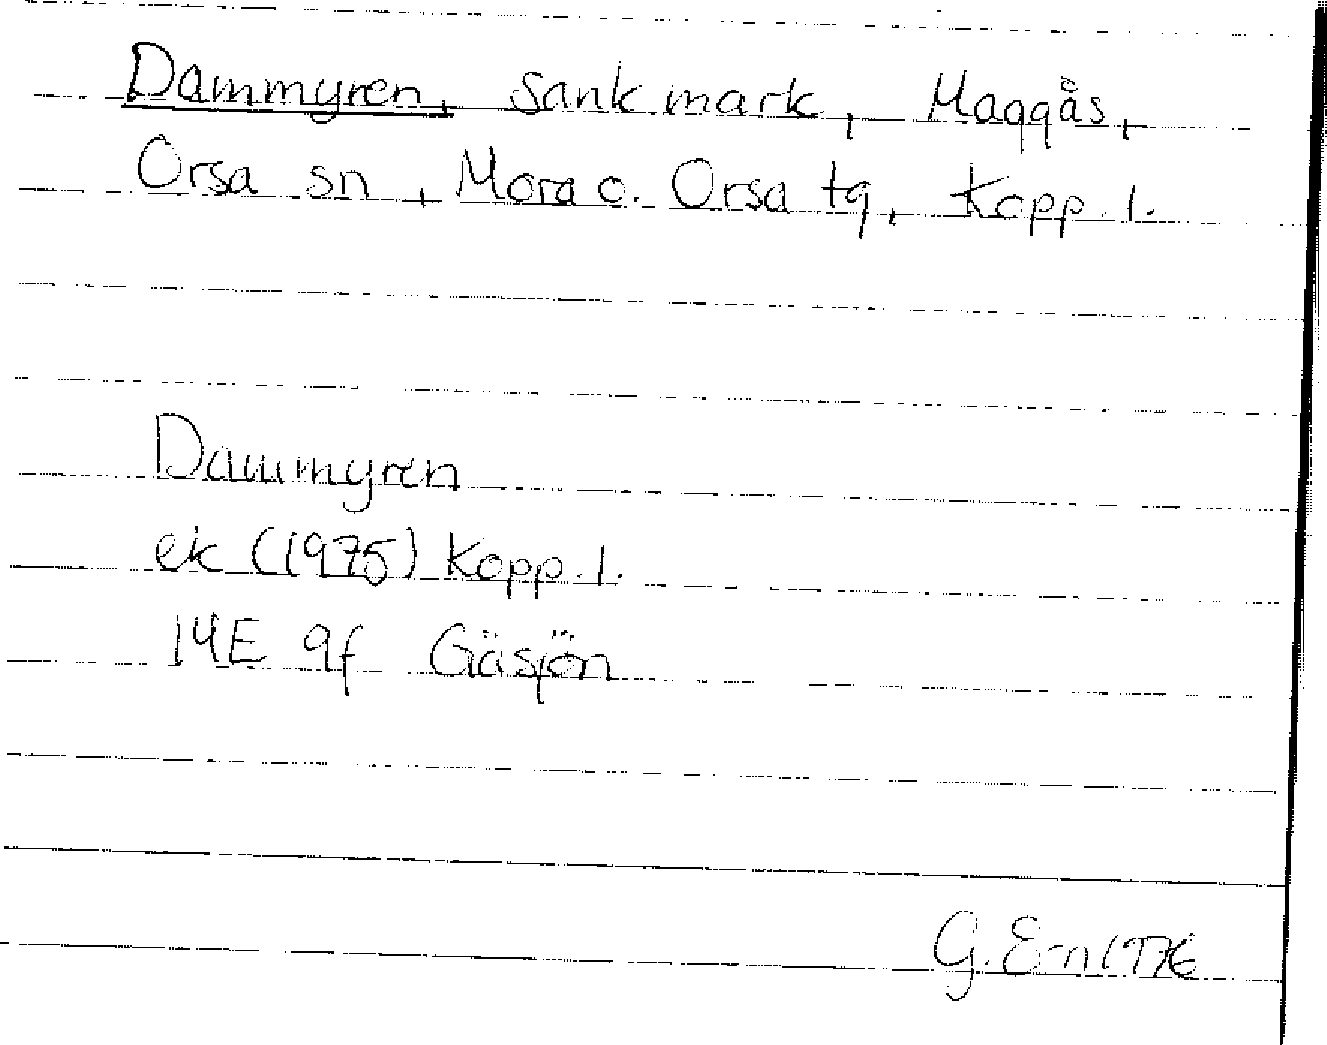 Dammyren, sank mark, Maggås,
Orsa sn, Mora o. Orsa tg, Kopp. l.
Dammyren
ek (1975) Kopp. l.
14E 9f Gåsjön
G. E-n 1976